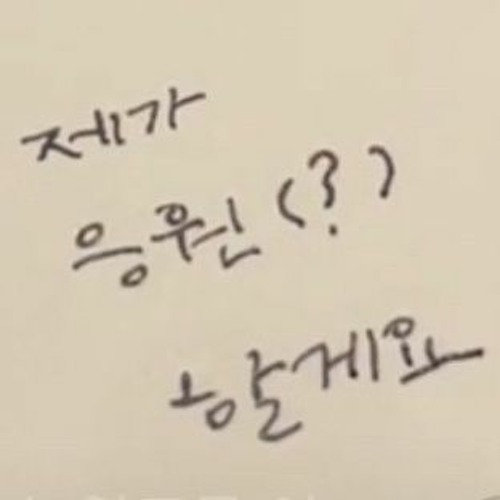 제가
응원(?)
할게요